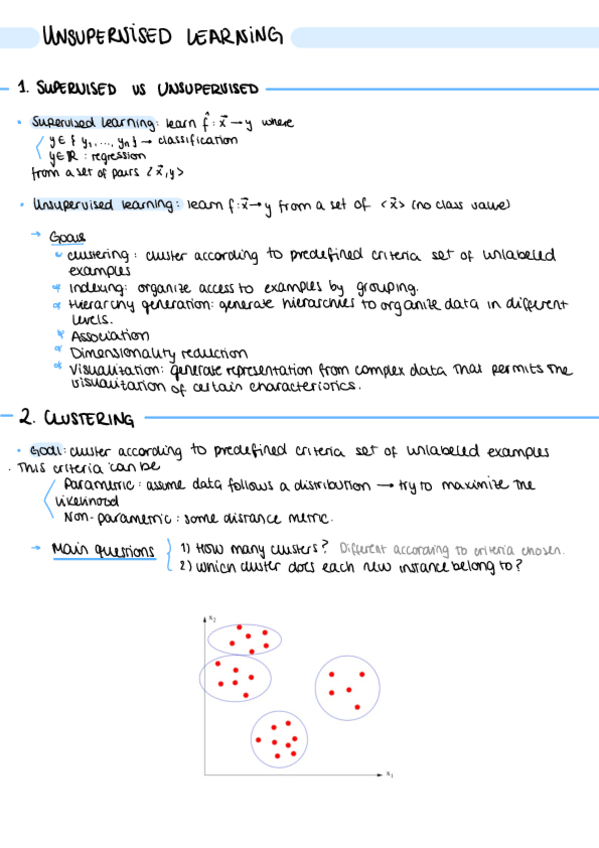 UNSUPERVISED LEARNING
1. SUPERVISED VS UNSUPERVISED
• Supervised learning: learn f̂: x⃗ → y where
y ∈ { y₁, ..., yₙ } → classification
y ∈ ℝ : regression
from a set of pairs < x⃗, y >
• Unsupervised learning: learn f: x⃗ → y from a set of < x⃗ > (no class value)
→ Goals
clustering: cluster according to predefined criteria set of unlabeled
examples
Indexing: organize access to examples by grouping.
Hierarchy generation: generate hierarchies to organize data in different
levels.
Association
Dimensionality reduction
Visualization: generate representation from complex data that permits the
visualization of certain characteristics.
2. CLUSTERING
• Goal: cluster according to predefined criteria set of unlabeled examples
. This criteria can be
Parametric: assume data follows a distribution → try to maximize the
likelihood
Non-parametric: some distance metric.
→ Main questions
1) How many clusters? Different according to criteria chosen.
2) which cluster does each new instance belong to?
x₂
x₁